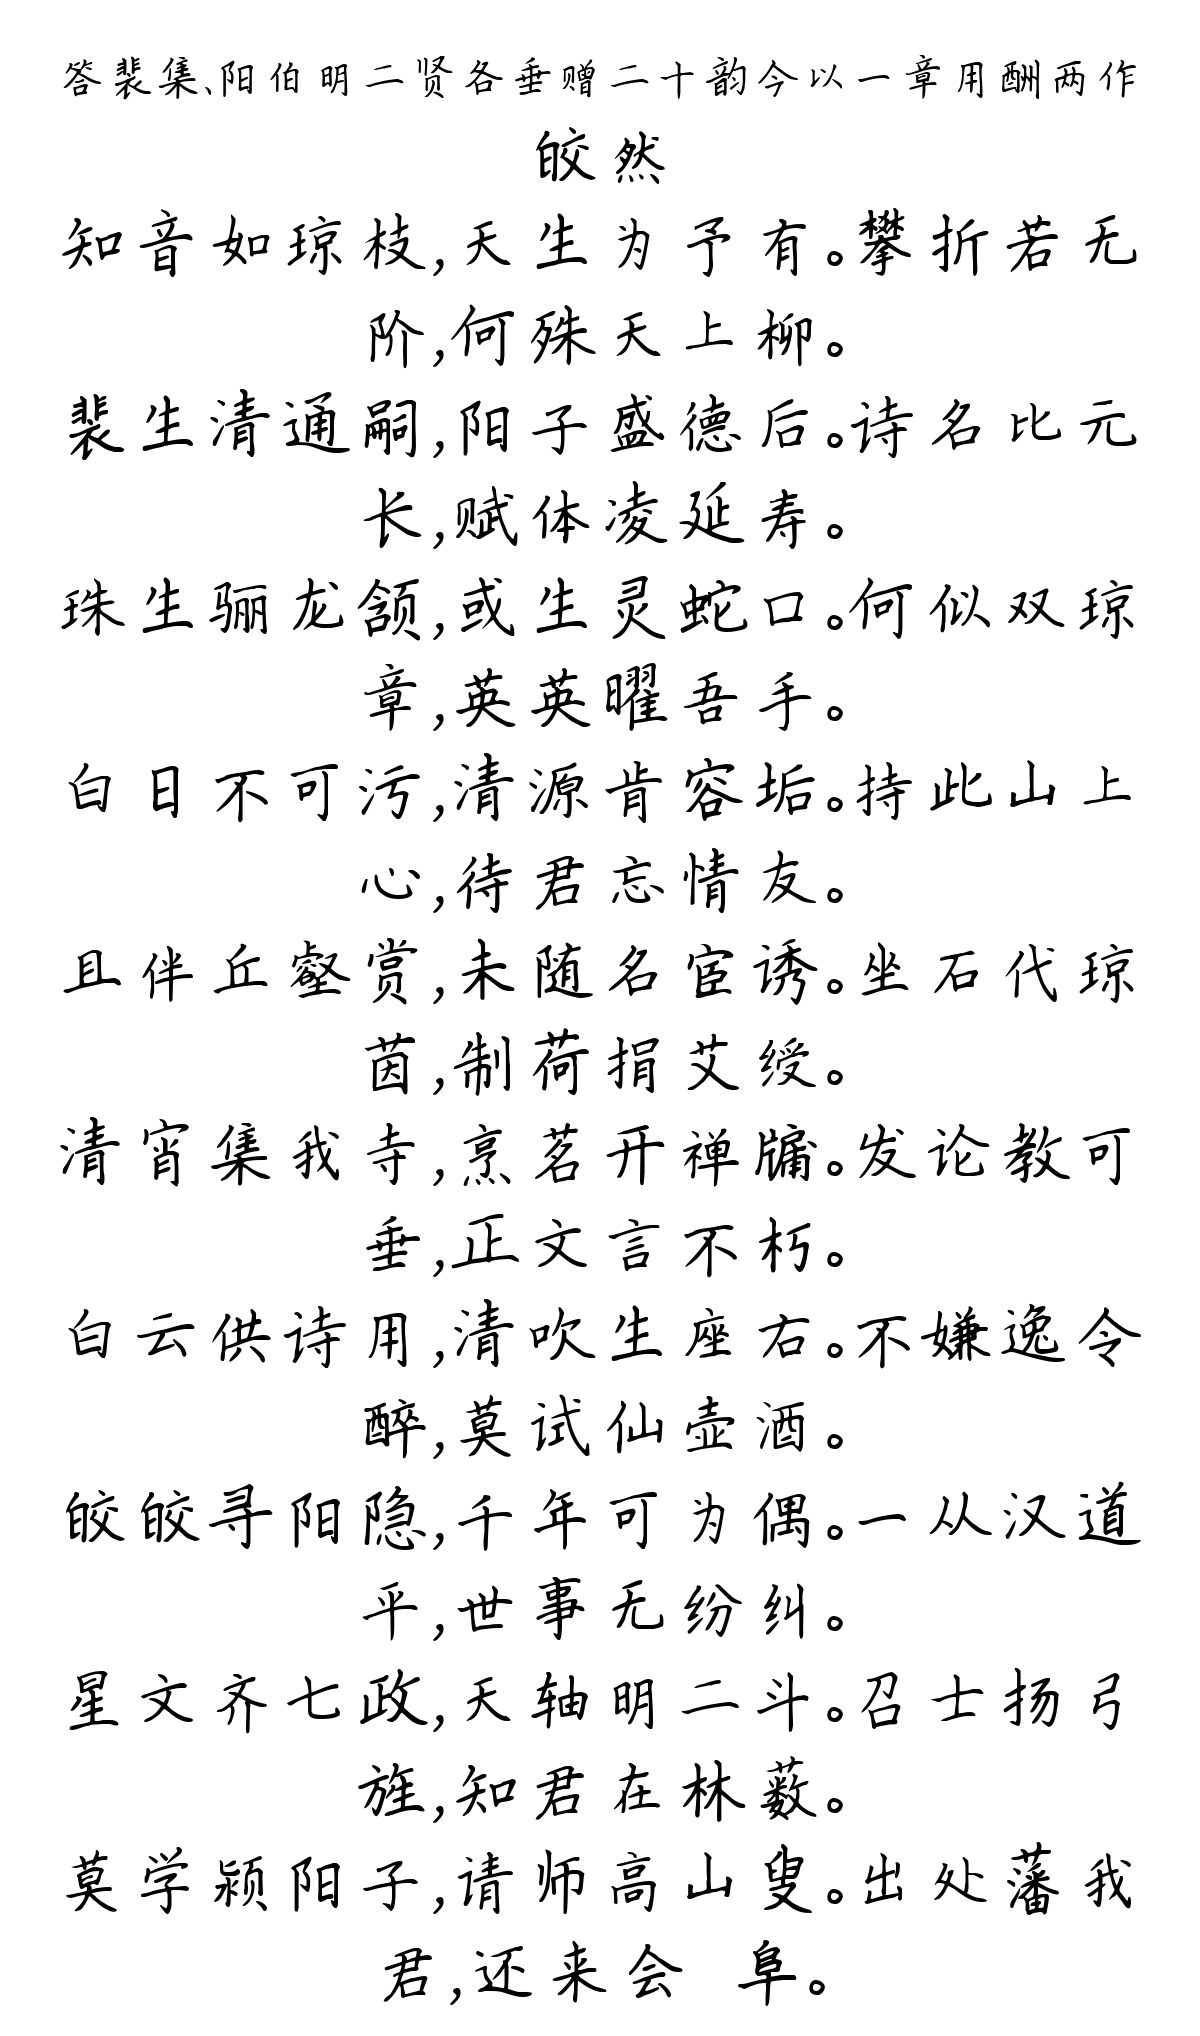 答裴集、阳伯明二贤各垂赠二十韵今以一章用酬两作
皎然
知音如琼枝,天生为予有。攀折若无
阶,何殊天上柳。
裴生清通嗣,阳子盛德后。诗名比元
长,赋体凌延寿。
珠生骊龙颔,或生灵蛇口。何似双琼
章,英英曜吾手。
白日不可污,清源肯容垢。持此山上
心,待君忘情友。
且伴丘壑赏,未随名宦诱。坐石代琼
茵,制荷捐艾绶。
清宵集我寺,烹茗开禅牖。发论教可
垂,正文言不朽。
白云供诗用,清吹生座右。不嫌逸令
醉,莫试仙壶酒。
皎皎寻阳隐,千年可为偶。一从汉道
平,世事无纷纠。
星文齐七政,天轴明二斗。召士扬弓
旌,知君在林薮。
莫学颍阳子,请师高山叟。出处藩我
君,还来会 阜。